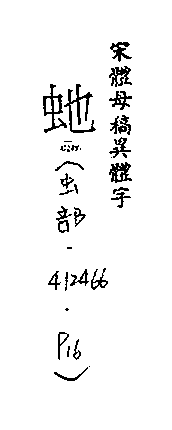 宋體母稿異體字
虵
（虫部-412466．P16）